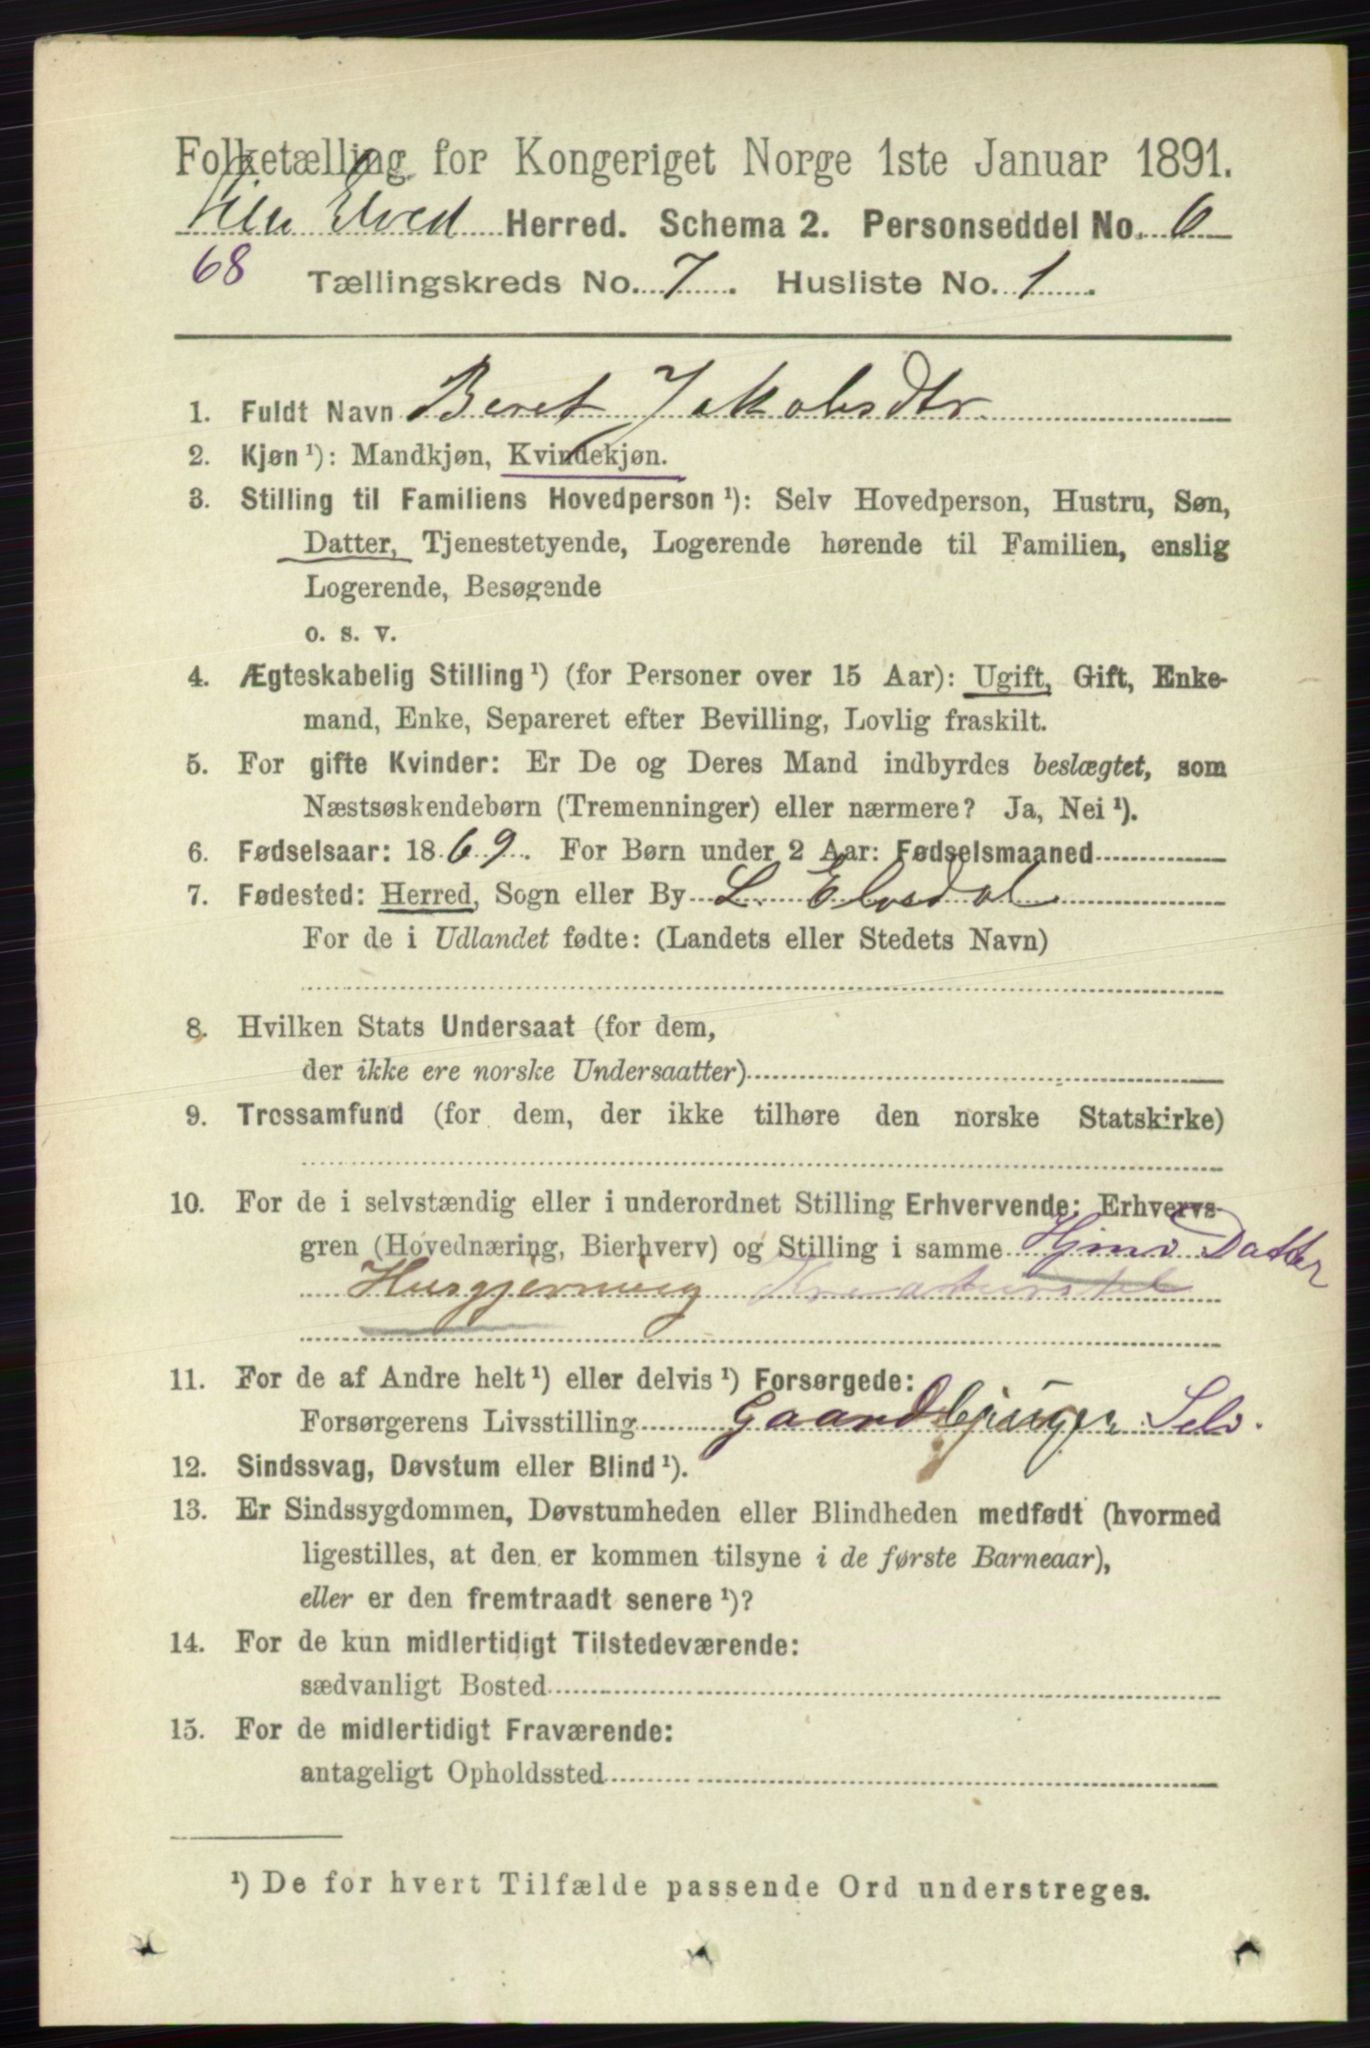 Folketælling for Kongeriget Norge 1ste Januar 1891.
Lille Elved Herred. Schema 2. Personseddel No. 6
68 Tællingskreds No. 7. Husliste No. 1.
1. Fuldt Navn Beret Jakobsdtr
2. Kjøn ¹): Mandkjøn, Kvindekjøn.
3. Stilling til Familiens Hovedperson ¹): Selv Hovedperson, Hustru, Søn,
Datter, Tjenestetyende, Logerende hørende til Familien, enslig
Logerende, Besøgende
o. s. v.
4. Ægteskabelig Stilling ¹) (for Personer over 15 Aar): Ugift, Gift, Enke-
mand, Enke, Separeret efter Bevilling, Lovlig fraskilt.
5. For gifte Kvinder: Er De og Deres Mand indbyrdes beslægtet, som
Næstsøskendebørn (Tremenninger) eller nærmere? Ja, Nei ¹).
6. Fødselsaar: 1869. For Børn under 2 Aar: Fødselsmaaned
7. Fødested: Herred, Sogn eller By L. Elvedal
For de i Udlandet fødte: (Landets eller Stedets Navn)
8. Hvilken Stats Undersaat (for dem,
der ikke ere norske Undersaatter)
9. Trossamfund (for dem, der ikke tilhøre den norske Statskirke)
10. For de i selvstændig eller i underordnet Stilling Erhvervende: Erhvervs-
gren (Hovednæring, Bierhverv) og Stilling i samme Hjmv Datter
Husgjerning Kreaturstel
11. For de af Andre helt ¹) eller delvis ¹) Forsørgede:
Forsørgerens Livsstilling Gaardbruger Selv.
12. Sindssvag, Døvstum eller Blind ¹).
13. Er Sindssygdommen, Døvstumheden eller Blindheden medfødt (hvormed
ligestilles, at den er kommen tilsyne i de første Barneaar),
eller er den fremtraadt senere ¹)?
14. For de kun midlertidigt Tilstedeværende:
sædvanligt Bosted
15. For de midlertidigt Fraværende:
antageligt Opholdssted
¹) De for hvert Tilfælde passende Ord understreges.